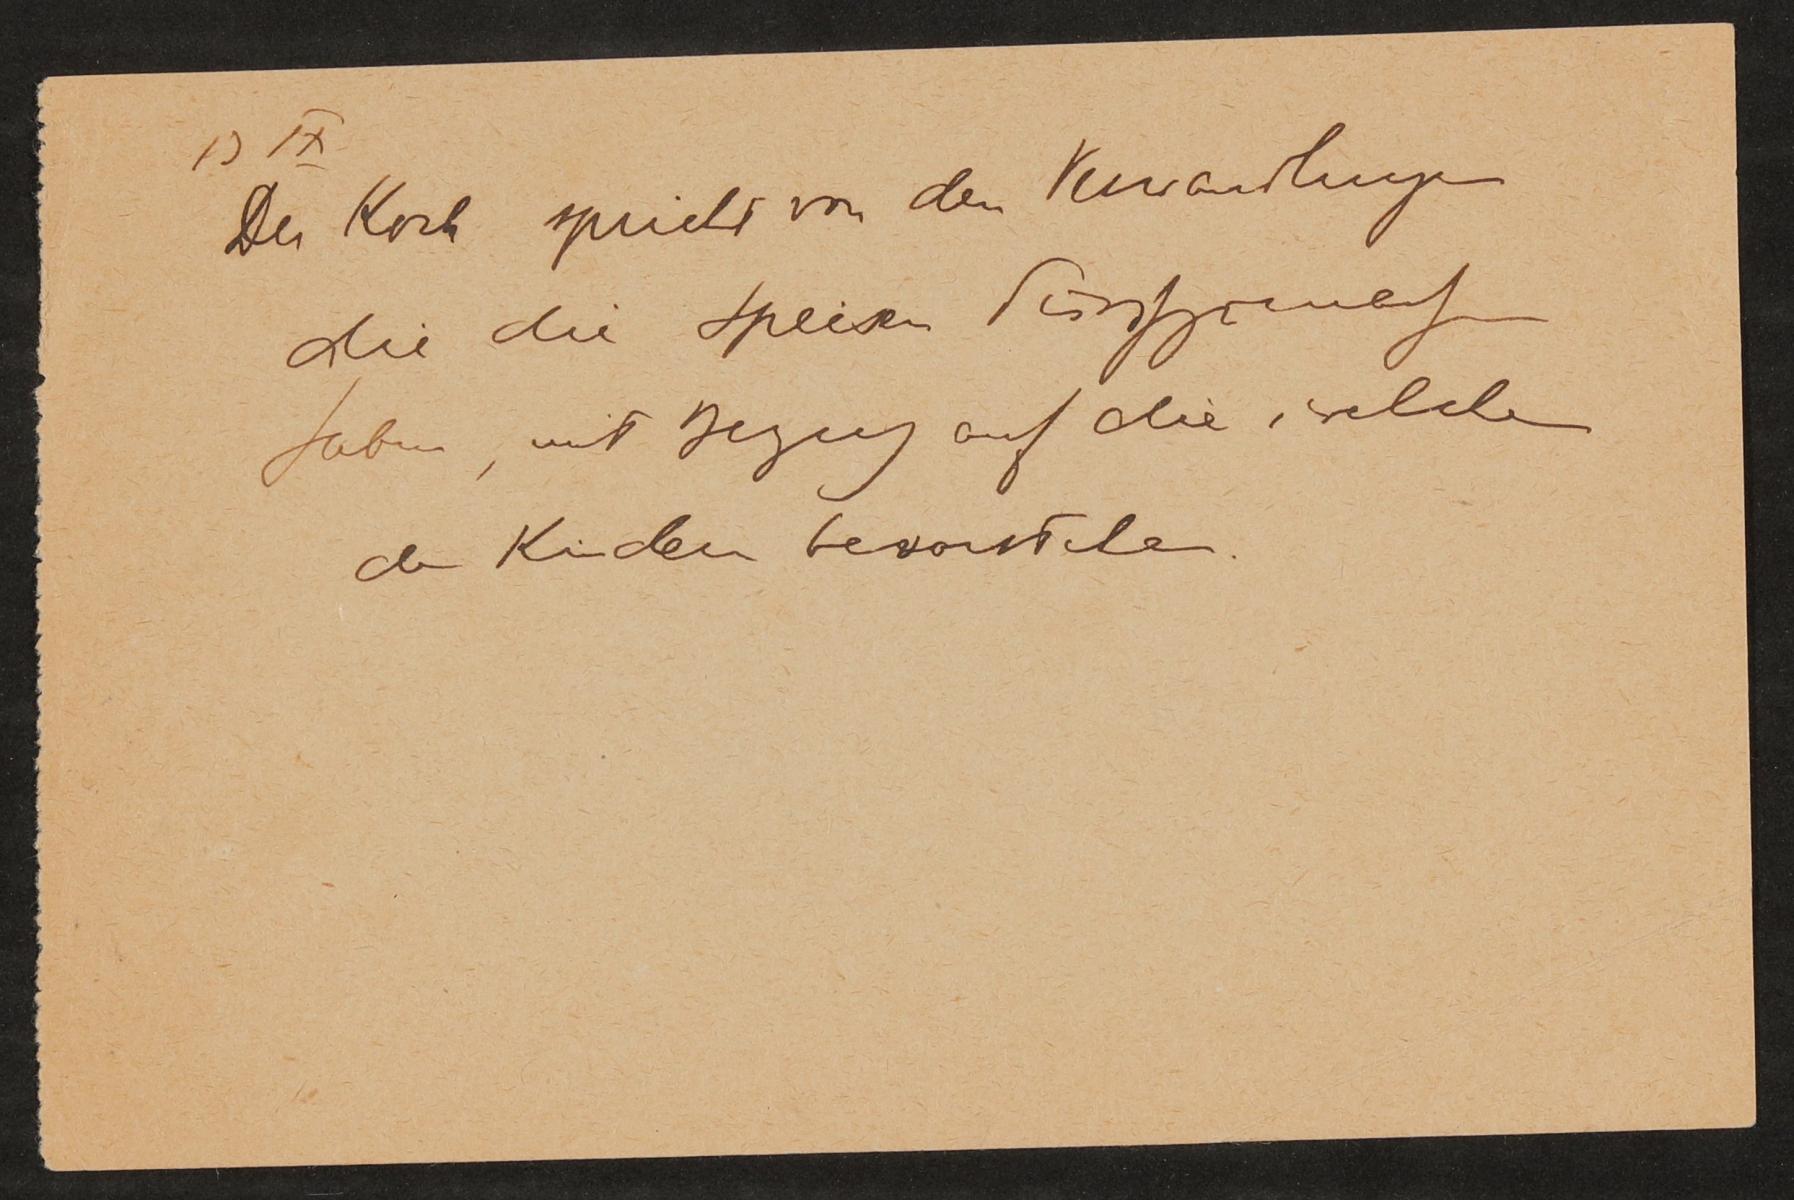 13 IX
Der Koch spricht von den Verwandlungen
die die Speisen durchgemacht
haben, mit Bezug auf die, welche
den Kindern bevorstehen.